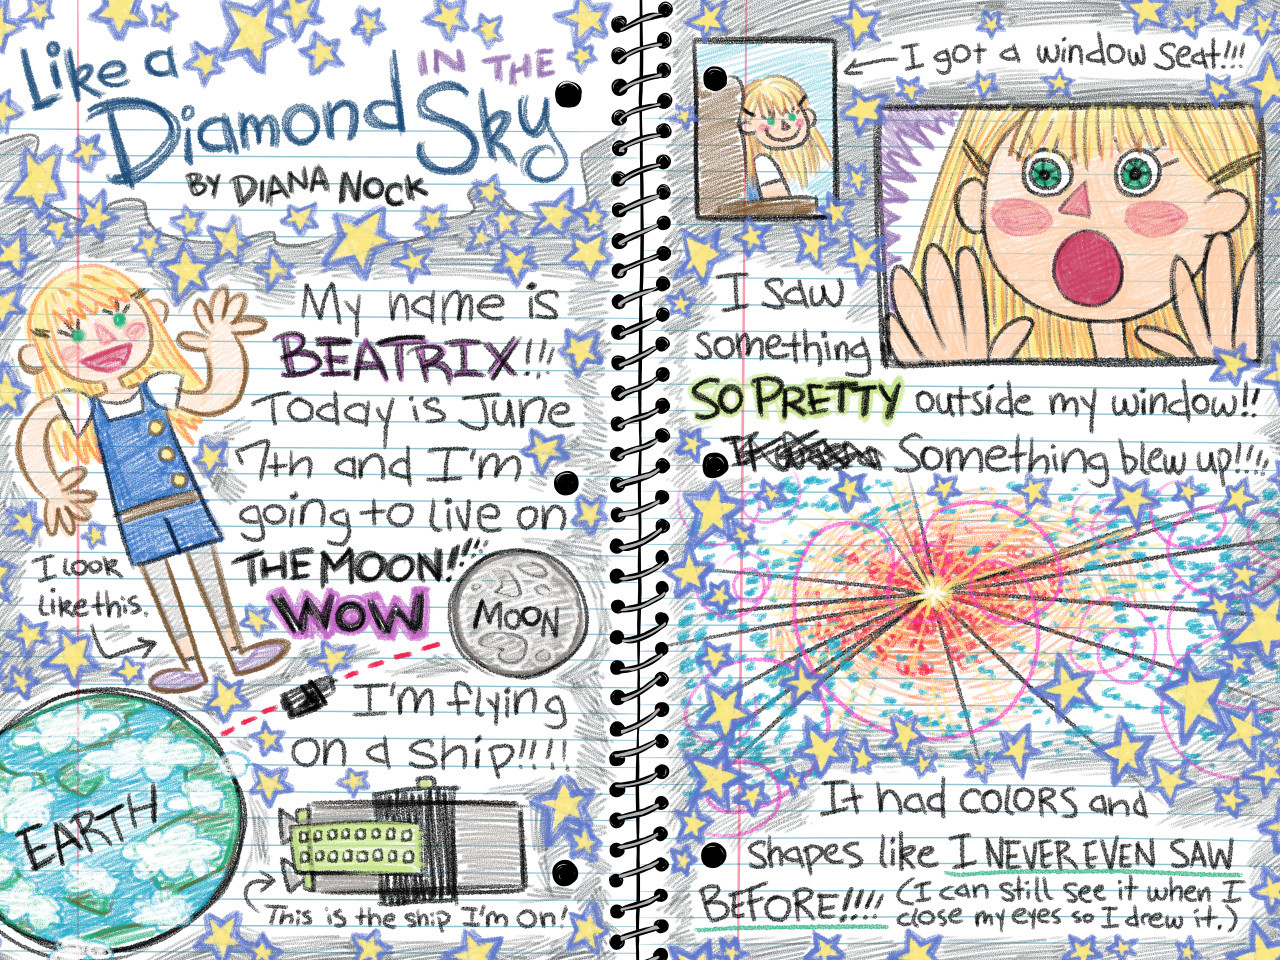 Like a
Diamond
IN THE
Sky
BY DIANA NOCK
My name is
BEATRIX!!!
Today is June
7th and I'm
going to live on
THE MOON!!!!!
WOW
MOON
I look
like this.
I'm flying
on a ship!!!!
EARTH
This is the ship I'm on!
I got a window seat!!!
I saw
something
SO PRETTY outside my window!!
Something blew up!!!!
It had COLORS and
shapes like I NEVER EVEN SAW
BEFORE!!!! (I can still see it when I
close my eyes so I drew it.)